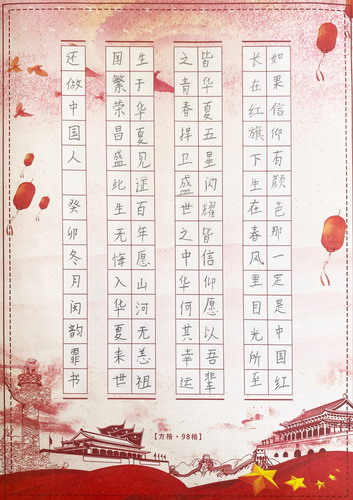 如果信仰有颜色那一定是中国红
长在红旗下生在春风里目光所至
皆华夏五星闪耀皆信仰愿以吾辈
之青春捍卫盛世之中华何其幸运
生于华夏见证百年愿山河无恙祖
国繁荣昌盛此生无悔入华夏来世
还做中国人 癸卯冬月闵韵霏书
【方格·98格】